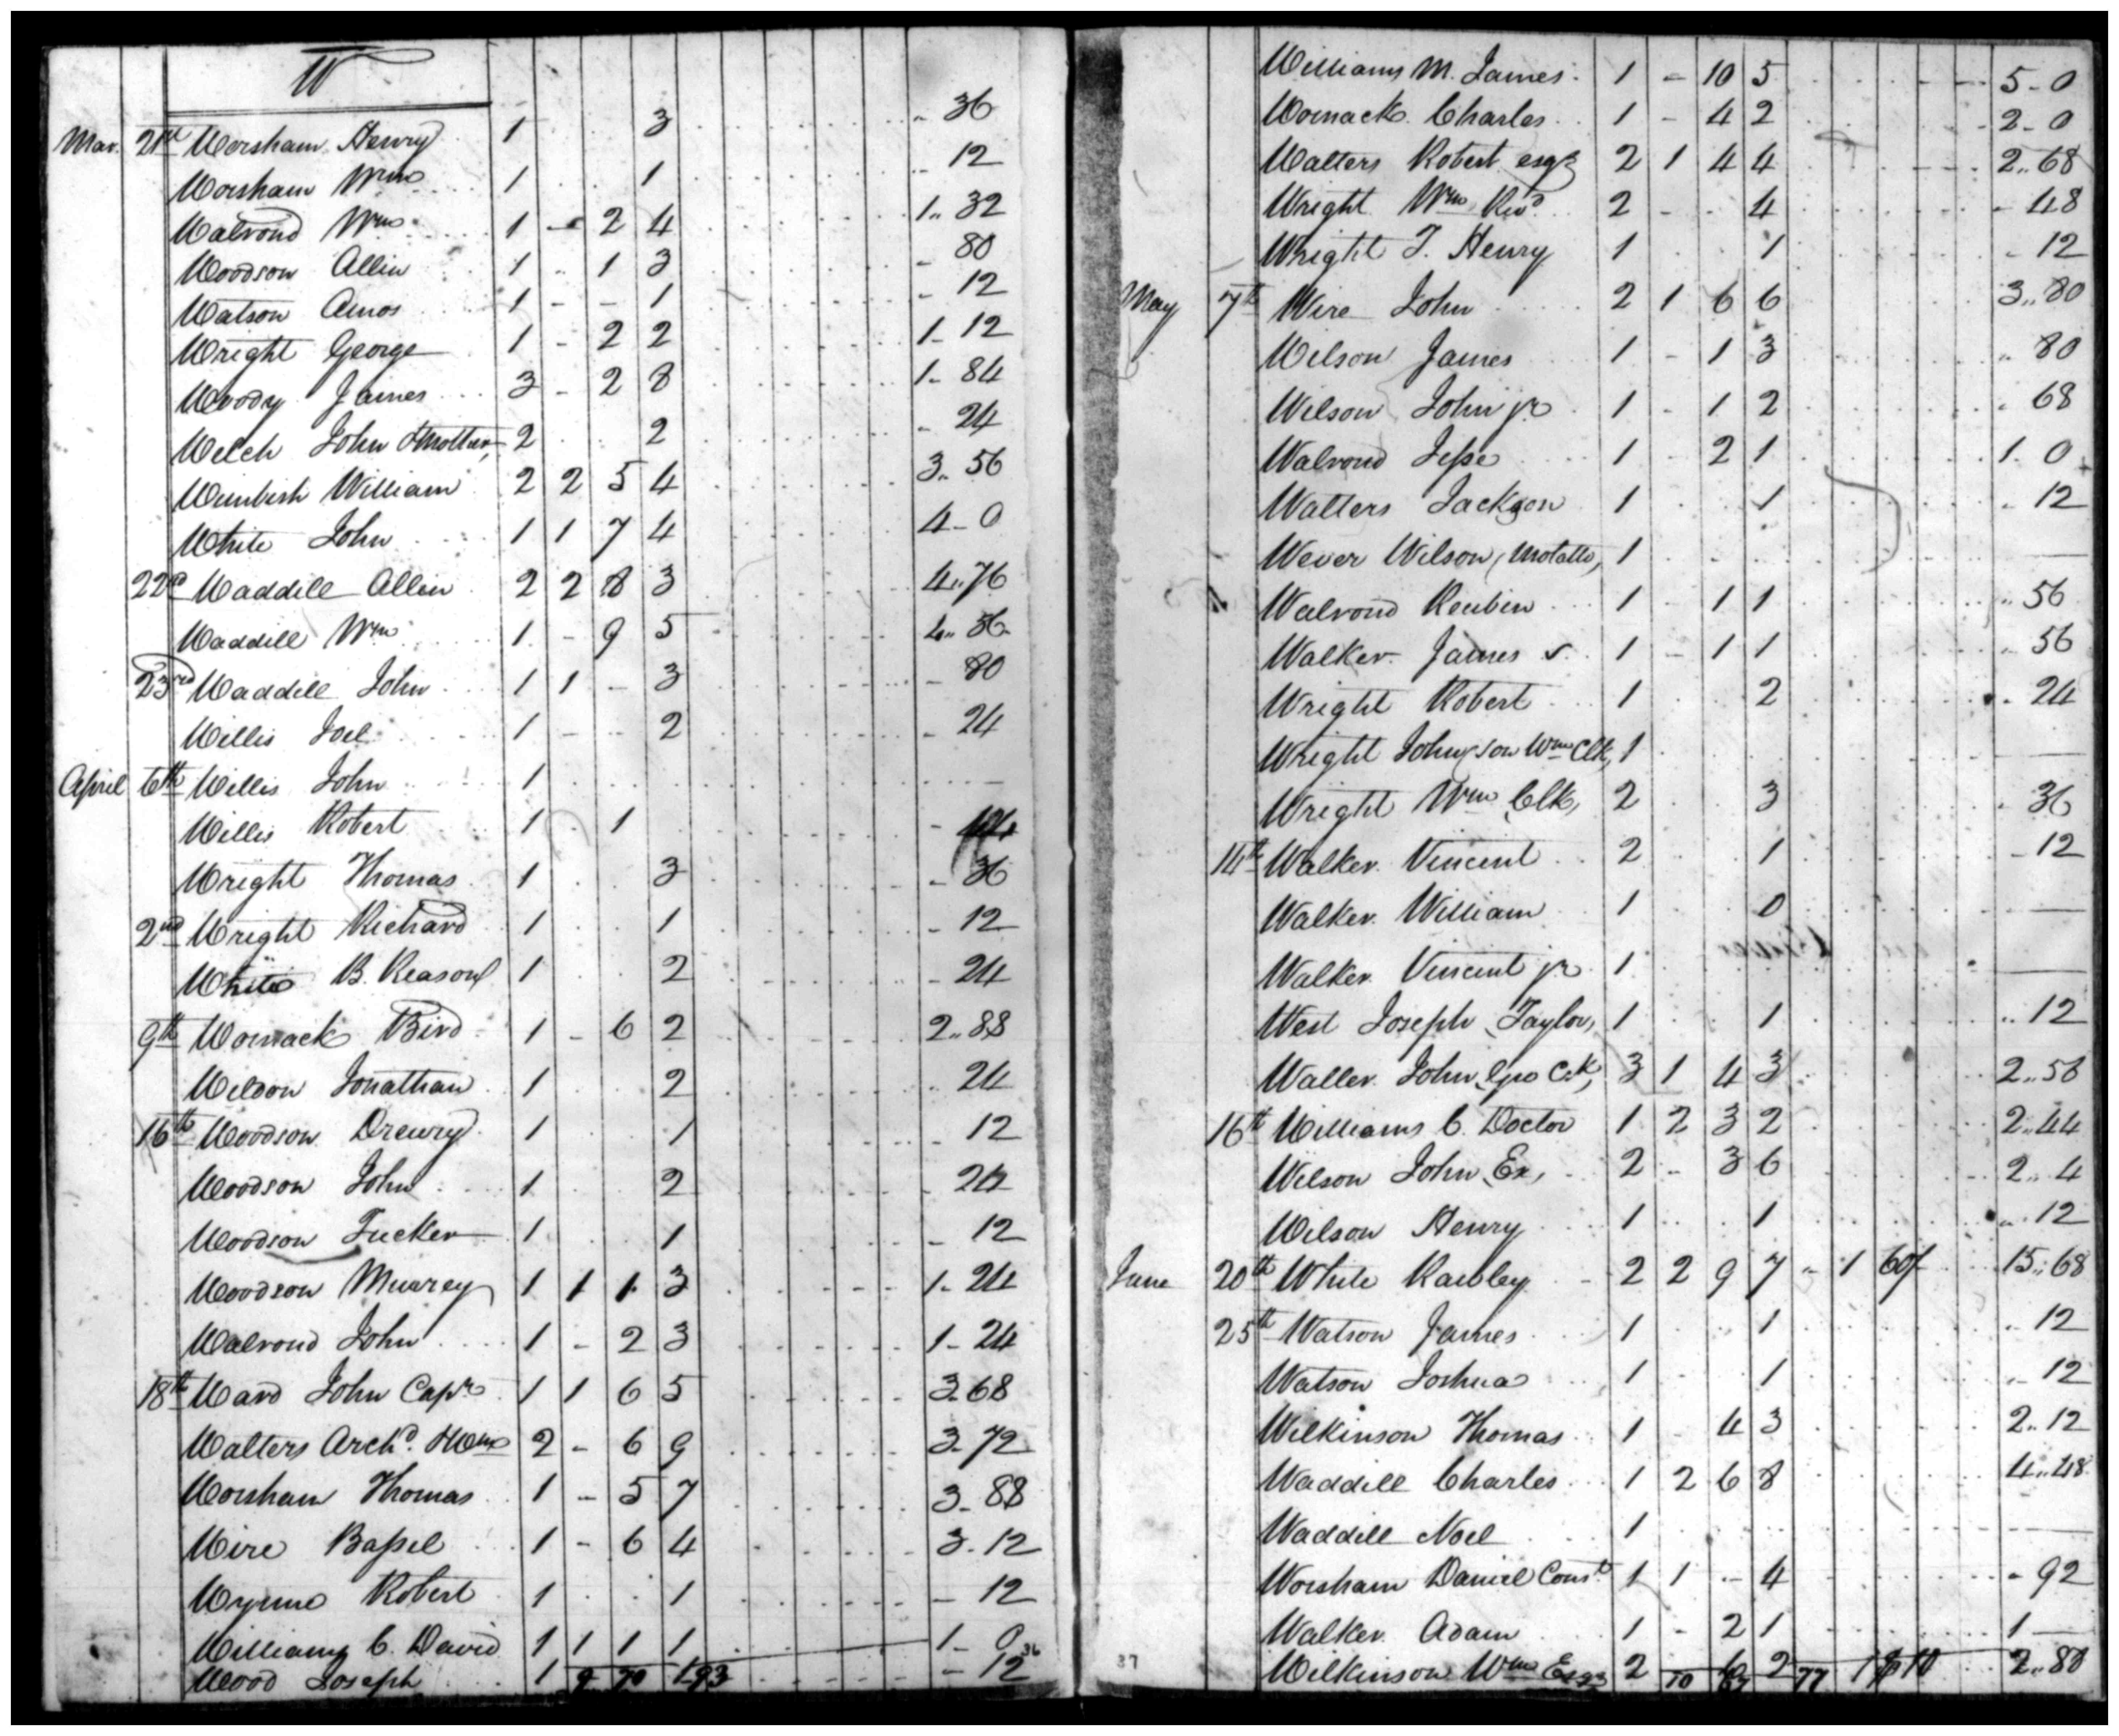 W
Mar. 21st Worsham Henry 1 3 36
Worsham Wm 1 1 12
Walrond Wm 1 - 2 4 1.. 32
Woodson Allin 1 .. 1 3 - 80
Watson Amos 1 - - 1 - 12
Wright George 1 - 2 2 1 - 12
Woody James 3 - 2 8 1 - 84
Welch John 2 2 - 24
Wimbish William 2 2 5 4 3.. 56
White John 1 1 7 4 4 - 0
22d Waddill Allin 2 2 8 3 4.. 76
Waddill Wm 1 - 9 5 4.. 56
23rd Waddill John 1 1 - 3 - 80
Willis Joel 1 - - 2 - 24
April 6th Willis John 1 —
Willis Robert 1 1 - 44
Wright Thomas 1 3 - 36
2nd Wright Richard 1 1 - 12
White B. Reason 1 2 - 24
9th Womack Bird 1 - 6 2 2.. 88
Weldon Jonathan 1 2 .. 24
16th Woodson Drewry 1 1 - 12
Woodson John 1 2 - 24
Woodson Tucker 1 1 - 12
Woodson Murrey 1 1 1 3 1 - 24
Walrond John 1 - 2 3 1 - 24
18th Ward John Capt 1 1 6 5 3 - 68
Walters Archd. & Wm 2 - 6 9 3 - 72
Worsham Thomas 1 - 5 7 3 - 88
Wire Bassel 1 - 6 4 3 - 12
Wynne Robert 1 1 - 12
Williams C. David 1 1 1 1 1 - 0
Wood Joseph 1 9 70 1 93 - 12 36
Williams M. James 1 - 10 5 5 - 0
Womack Charles 1 - 4 2 2 - 0
Walters Robert esqr 2 1 4 4 2.. 68
Wright Wm Revd. 2 - 4 - 48
Wright T. Henry 1 1 - 12
May 7th Wire John 2 1 6 6 3.. 80
Wilson James 1 - 1 3 .. 80
Wilson John jr 1 - 1 2 . 68
Walrond Jesse 1 - 2 1 1. 0
Walters Jackson 1 1 . 12
Wever Wilson (Molatto) 1 —
Walrond Reubin 1 - 1 1 .. 56
Walker James S. 1 - 1 1 .. 56
Wright Robert 1 2 . 24
Wright John (son Wm Clk) 1 —
Wright Wm (Clk) 2 3 . 36
14th Walker Vincent 2 1 - 12
Walker William 1 0 —
Walker Vincent jr 1 —
West Joseph (Taylor) 1 1 .. 12
Waller John 3 1 4 3 2.. 56
16th Williams C. Doctor 1 2 3 2 2.. 44
Wilson John (Ex) 2 - 3 6 2.. 4
Wilson Henry 1 1 .. 12
June 20th White Rawley 2 2 9 7 - 1 60 15.. 68
25th Watson James 1 1 .. 12
Watson Joshua 1 1 .. 12
Wilkinson Thomas 1 - 4 3 2.. 12
Waddill Charles 1 2 6 8 4.. 48
Waddill Noel 1 —
Worsham Daniel Const. 1 1 - 4 - 92
Walker Adam 1 - 2 1 1 —
37 Wilkinson Wm Esqr 2 10 6 2 77 1 2.. 88